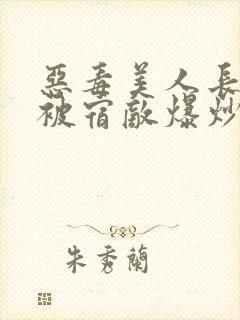 惡毒美人長
被宿敵爆炒
朱秀蘭